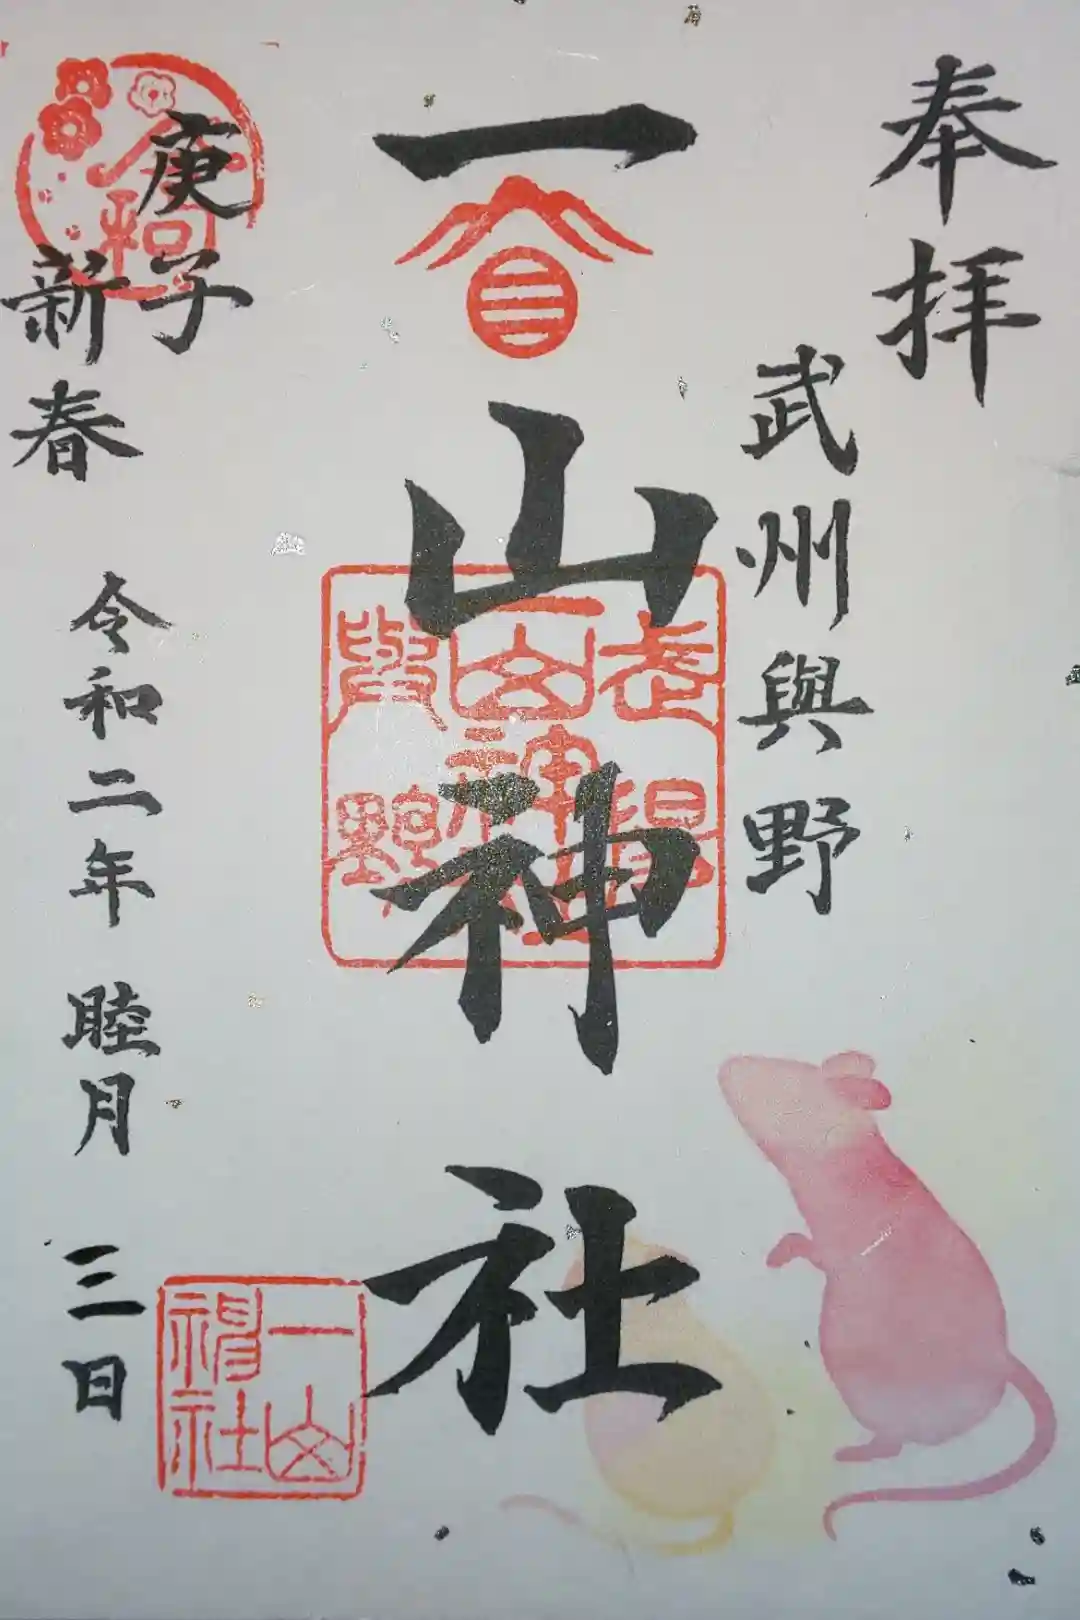 奉拝
武州與野
一山神社
庚子
新春
令和二年 睦月 三日
令和
一山
神社